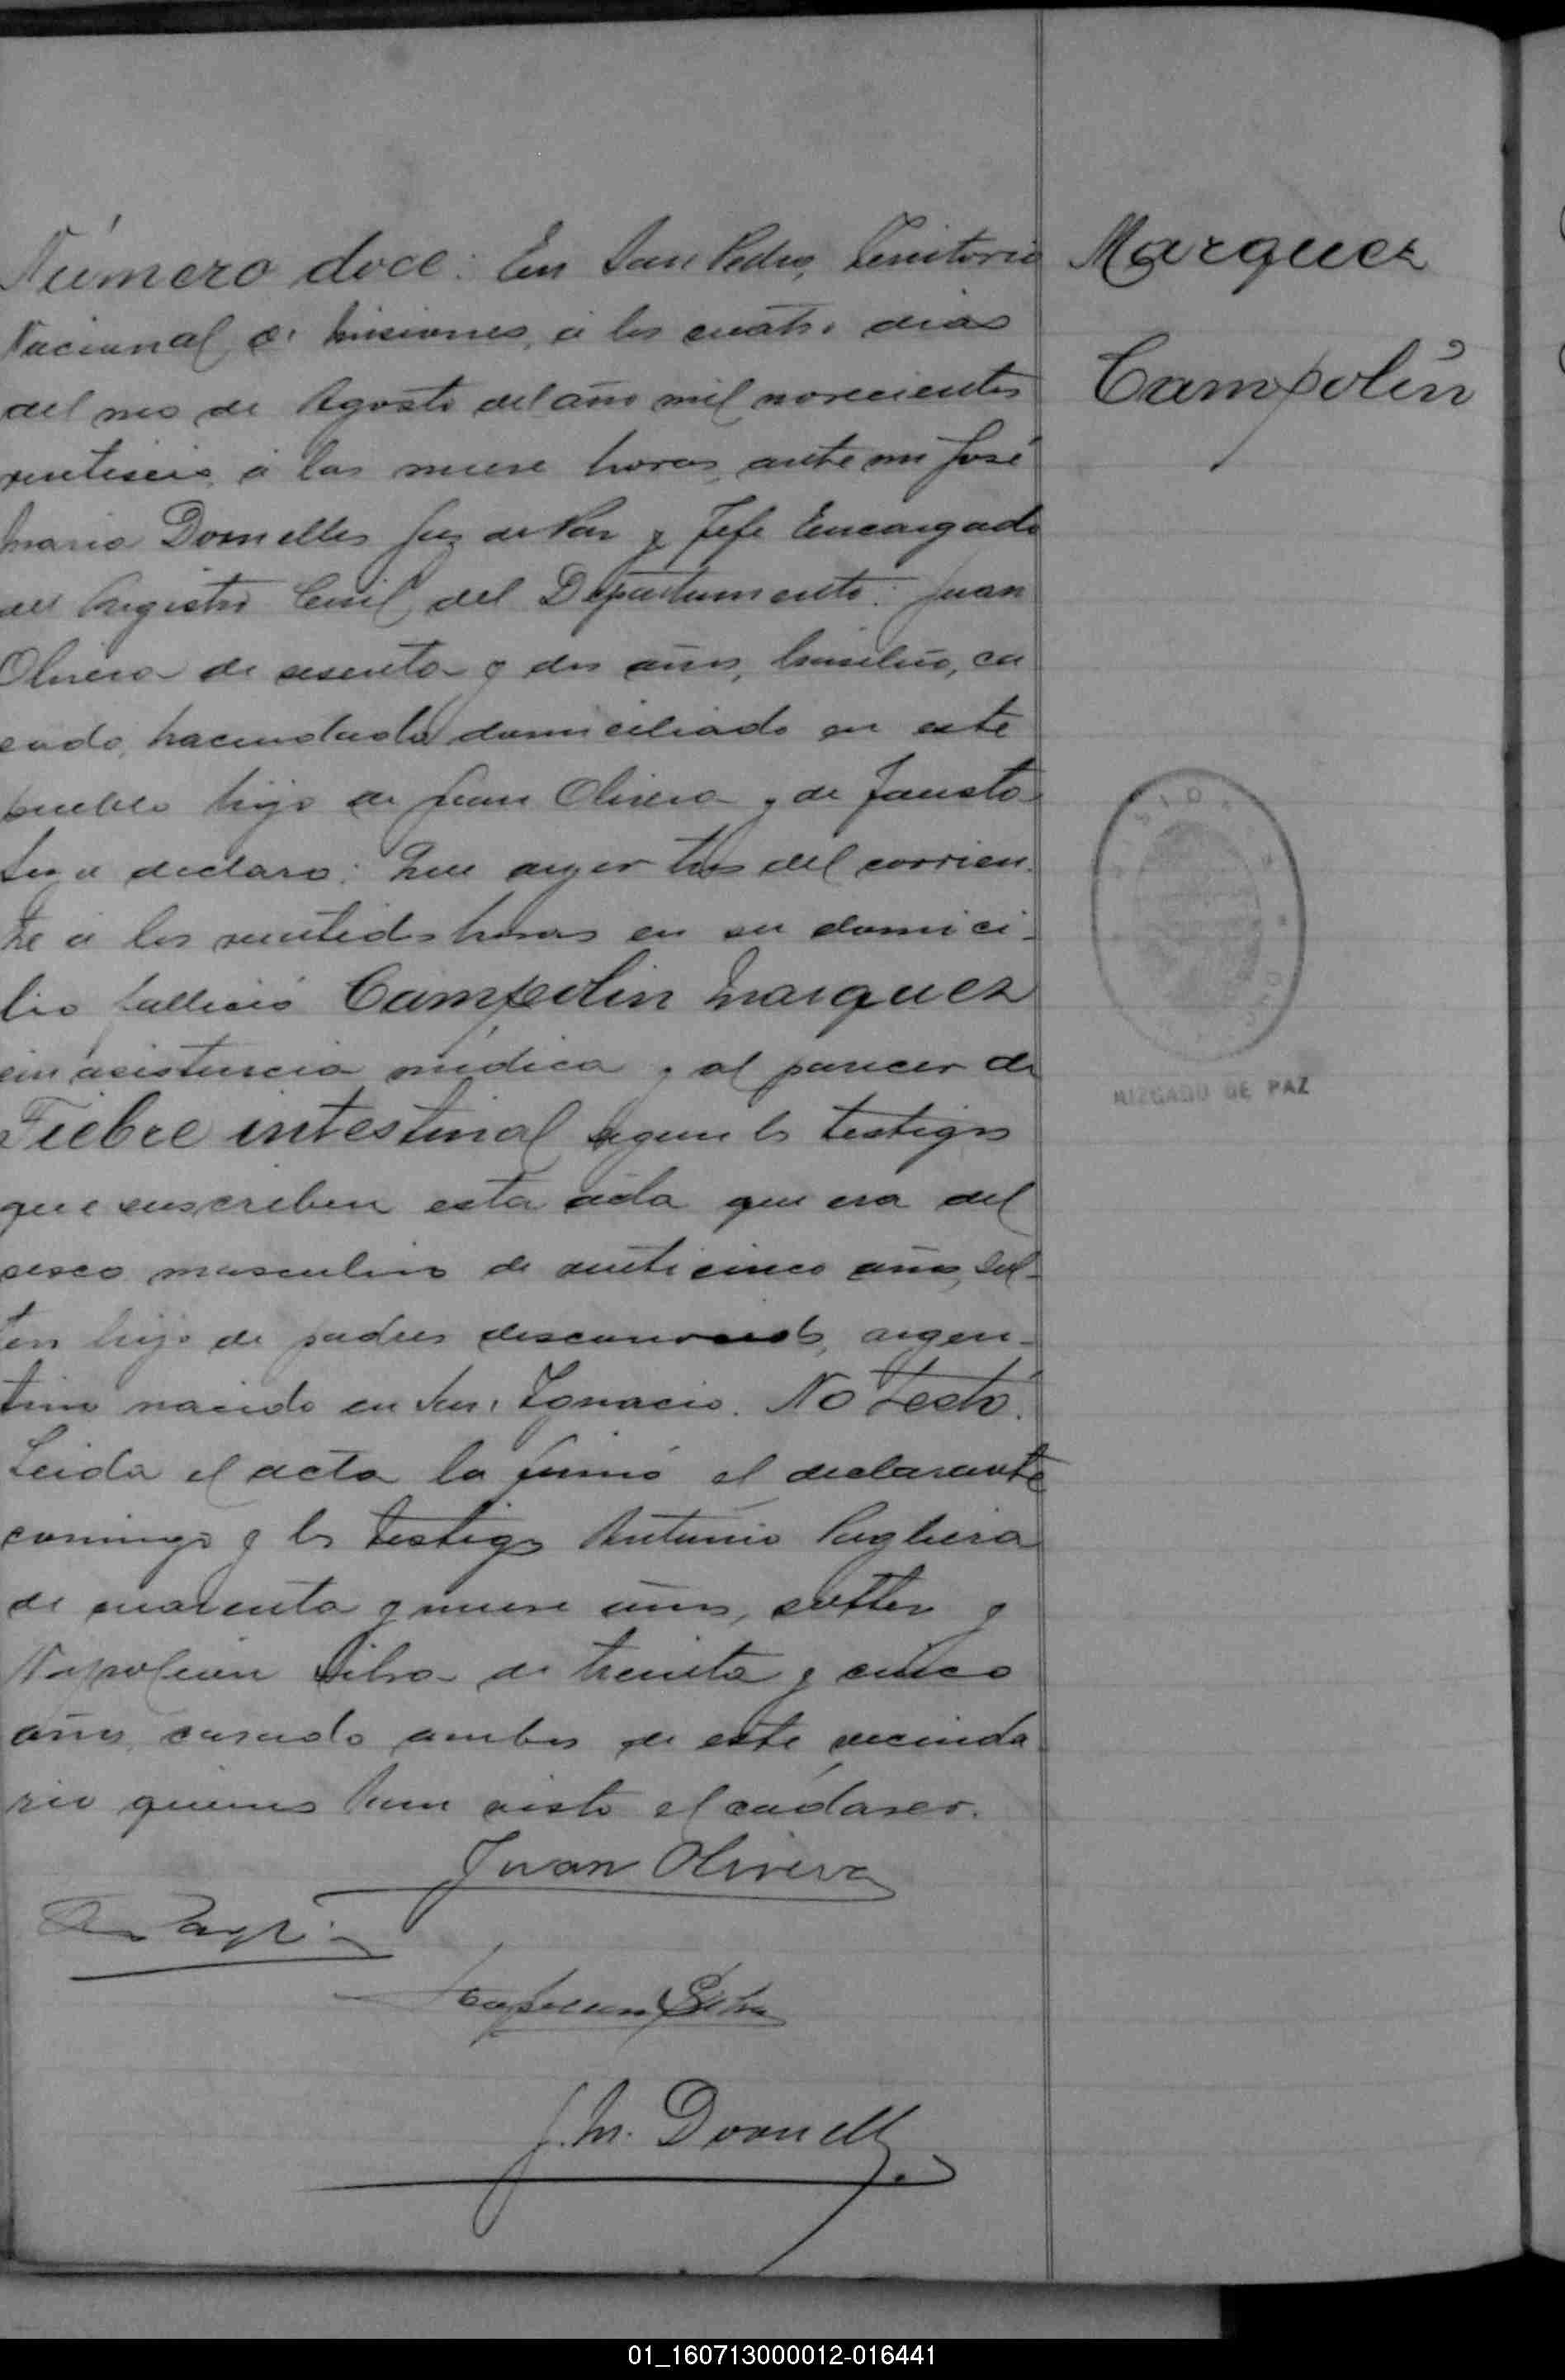 Número doce: En San Pedro, Territorio
Nacional de Misiones, á los cuatro dias
del mes de Agosto del año mil novecientos
veintiseis, á las nueve horas, ante mi José
Maria Dornelles Juez de Paz y Jefe Encargado
del Registro Civil del Departamento: Juan
Olivera de sesenta y dos años, brasilero, ca
sado, hacendado domiciliado en este
pueblo hijo de Juan Olivera y de Fausta
declaro: Que ayer tres del corrien-
te á las veintidos horas en su domici-
lio falleció Campolin Marquez
sin asistencia médica y al parecer de
Fiebre intestinal segun los testigos
que suscriben esta acta que era del
sexo masculino de veinticinco años, sol-
tero hijo de padres desconocidos, argen-
tino nacido en San Ignacio. No testó.
Leida el acta la firmó el declarante
conmigo y los testigos Antonio
de cuarenta y nueve años, soltero y
Napoleón Silva de treinta y cinco
años, casado ambos de este vecinda
rio quienes han visto el cadaver.
Juan Olivera
Napoleon Silva
J. M. Dornell
Marquez
Campolín
JUZGADO DE PAZ
01_160713000012-016441